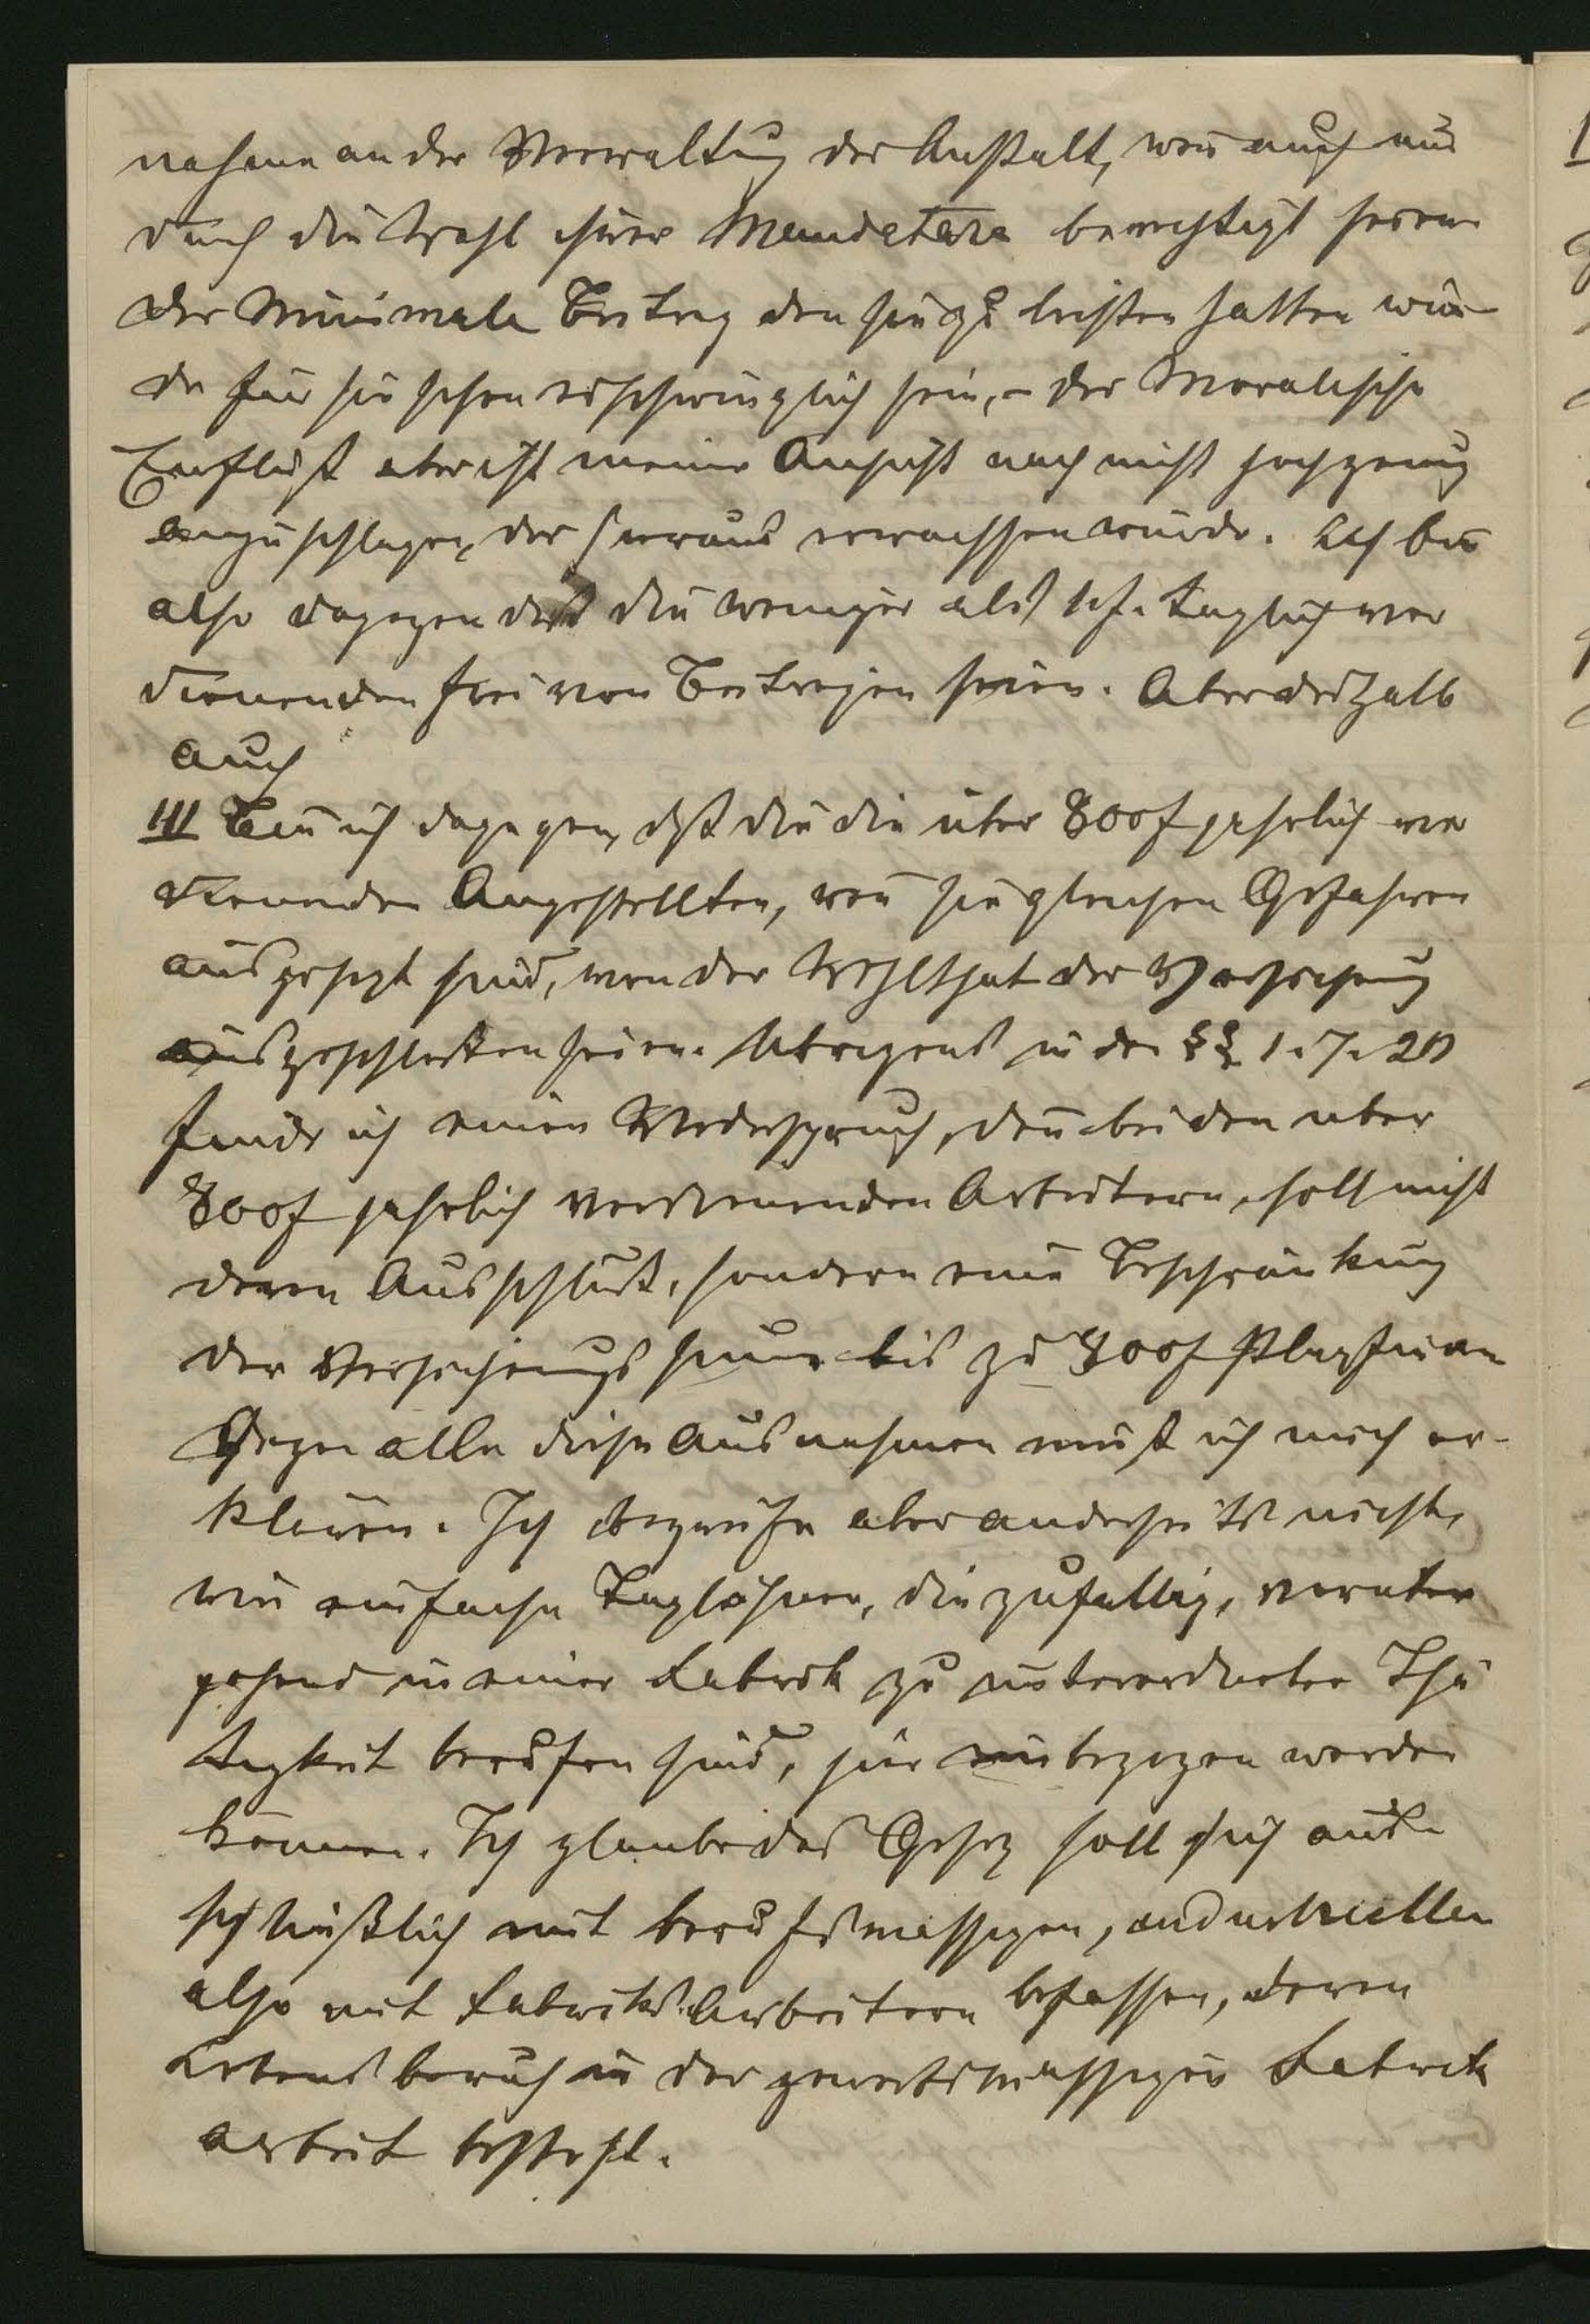 nahme an der Verwaltung der Anstalt, wen̄ auch nur
durch die Wahl ihrer Mandatare berechtigt seien
der Minimale Beitrag den sie zu leisten hatten wür
de für sie schon erschwinglich sein, – der Moralische
Einfluß aber ist meiner Ansicht nach nicht hoch genug
anzuschlagen, der hieraus erwachsen würde. Ich bin
also dagegen daß die weniger als 1 f. taglich ver
dienenden frei von Beitragen seien. Aber deshalb
auch
III Bin ich dagegen, daß die die über 800 f jahrlich ver
dienenden Angestellten, wen̄ sie gleichen Gefahren
ausgesezt sind, von der Wohlthat der Versicherung
ausgeschloßen seien. Ubrigens in den §§ 1. 7. 20
finde ich einen Wiederspruch, den̄ bei den uber
800 f jahrlich verdienenden Arbeitern, soll nicht
deren Ausschluß, sondern eine Beschränkung
der Versicherungs sum̄e bis zu 800 f Platz
Gegen alle diese Ausnahmen muß ich mich er-
klären. Ich begreife aber anderseits nicht,
wie einfache Taglöhner, die zufallig, voruber
gehend in einer Fabrik zu untergeordneter Thä
tigkeit berufen sind, hier einbezogen werden
können. Ich glaube das Gesez soll sich aus
schließlich mit berufsmassigen, industriellen
also mit Fabriks Arbeitern befassen, deren
Lebensberuf in der gewerbsmassigen Fabrik
arbeit besteht.